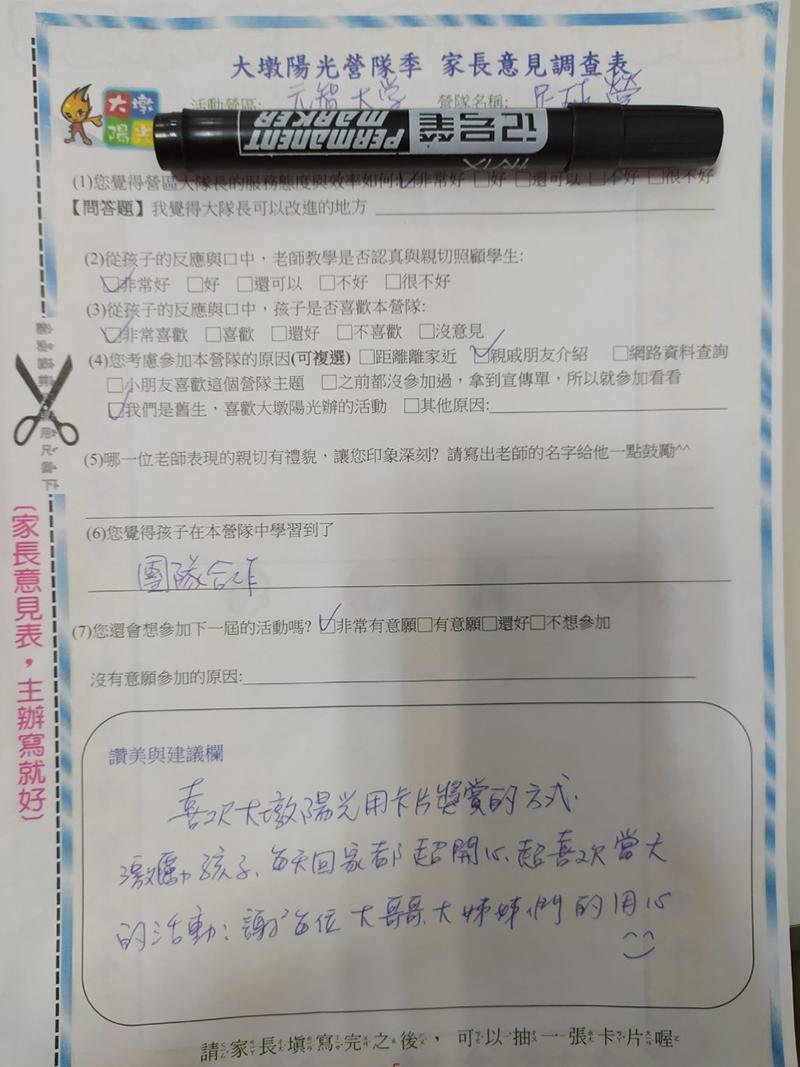 大墩陽光營隊季 家長意見調查表
大墩
陽光
活動營區: 元智大學 營隊名稱: 足球營
PERMANENT MARKER 记号笔
(1)您覺得營區大隊長的服務態度與效率如何: ☑非常好 □好 □還可以 □不好 □很不好
【問答題】我覺得大隊長可以改進的地方
(2)從孩子的反應與口中，老師教學是否認真與親切照顧學生:
☑非常好 □好 □還可以 □不好 □很不好
(3)從孩子的反應與口中，孩子是否喜歡本營隊:
☑非常喜歡 □喜歡 □還好 □不喜歡 □沒意見
(4)您考慮參加本營隊的原因(可複選) □距離離家近 ☑親戚朋友介紹 □網路資料查詢
□小朋友喜歡這個營隊主題 □之前都沒參加過，拿到宣傳單，所以就參加看看
☑我們是舊生，喜歡大墩陽光辦的活動 □其他原因:
(5)哪一位老師表現的親切有禮貌，讓您印象深刻? 請寫出老師的名字給他一點鼓勵^^
(6)您覺得孩子在本營隊中學習到了
團隊合作
(7)您還會想參加下一屆的活動嗎? ☑非常有意願□有意願□還好□不想參加
沒有意願參加的原因:
讚美與建議欄
喜歡大墩陽光用卡片獎賞的方式.
激勵孩子、每天回家都超開心、超喜歡當天
的活動；謝謝每位大哥哥大姊姊們的用心
^^
請家長填寫完之後，可以抽一張卡片喔
(家長意見表，主辦寫就好)